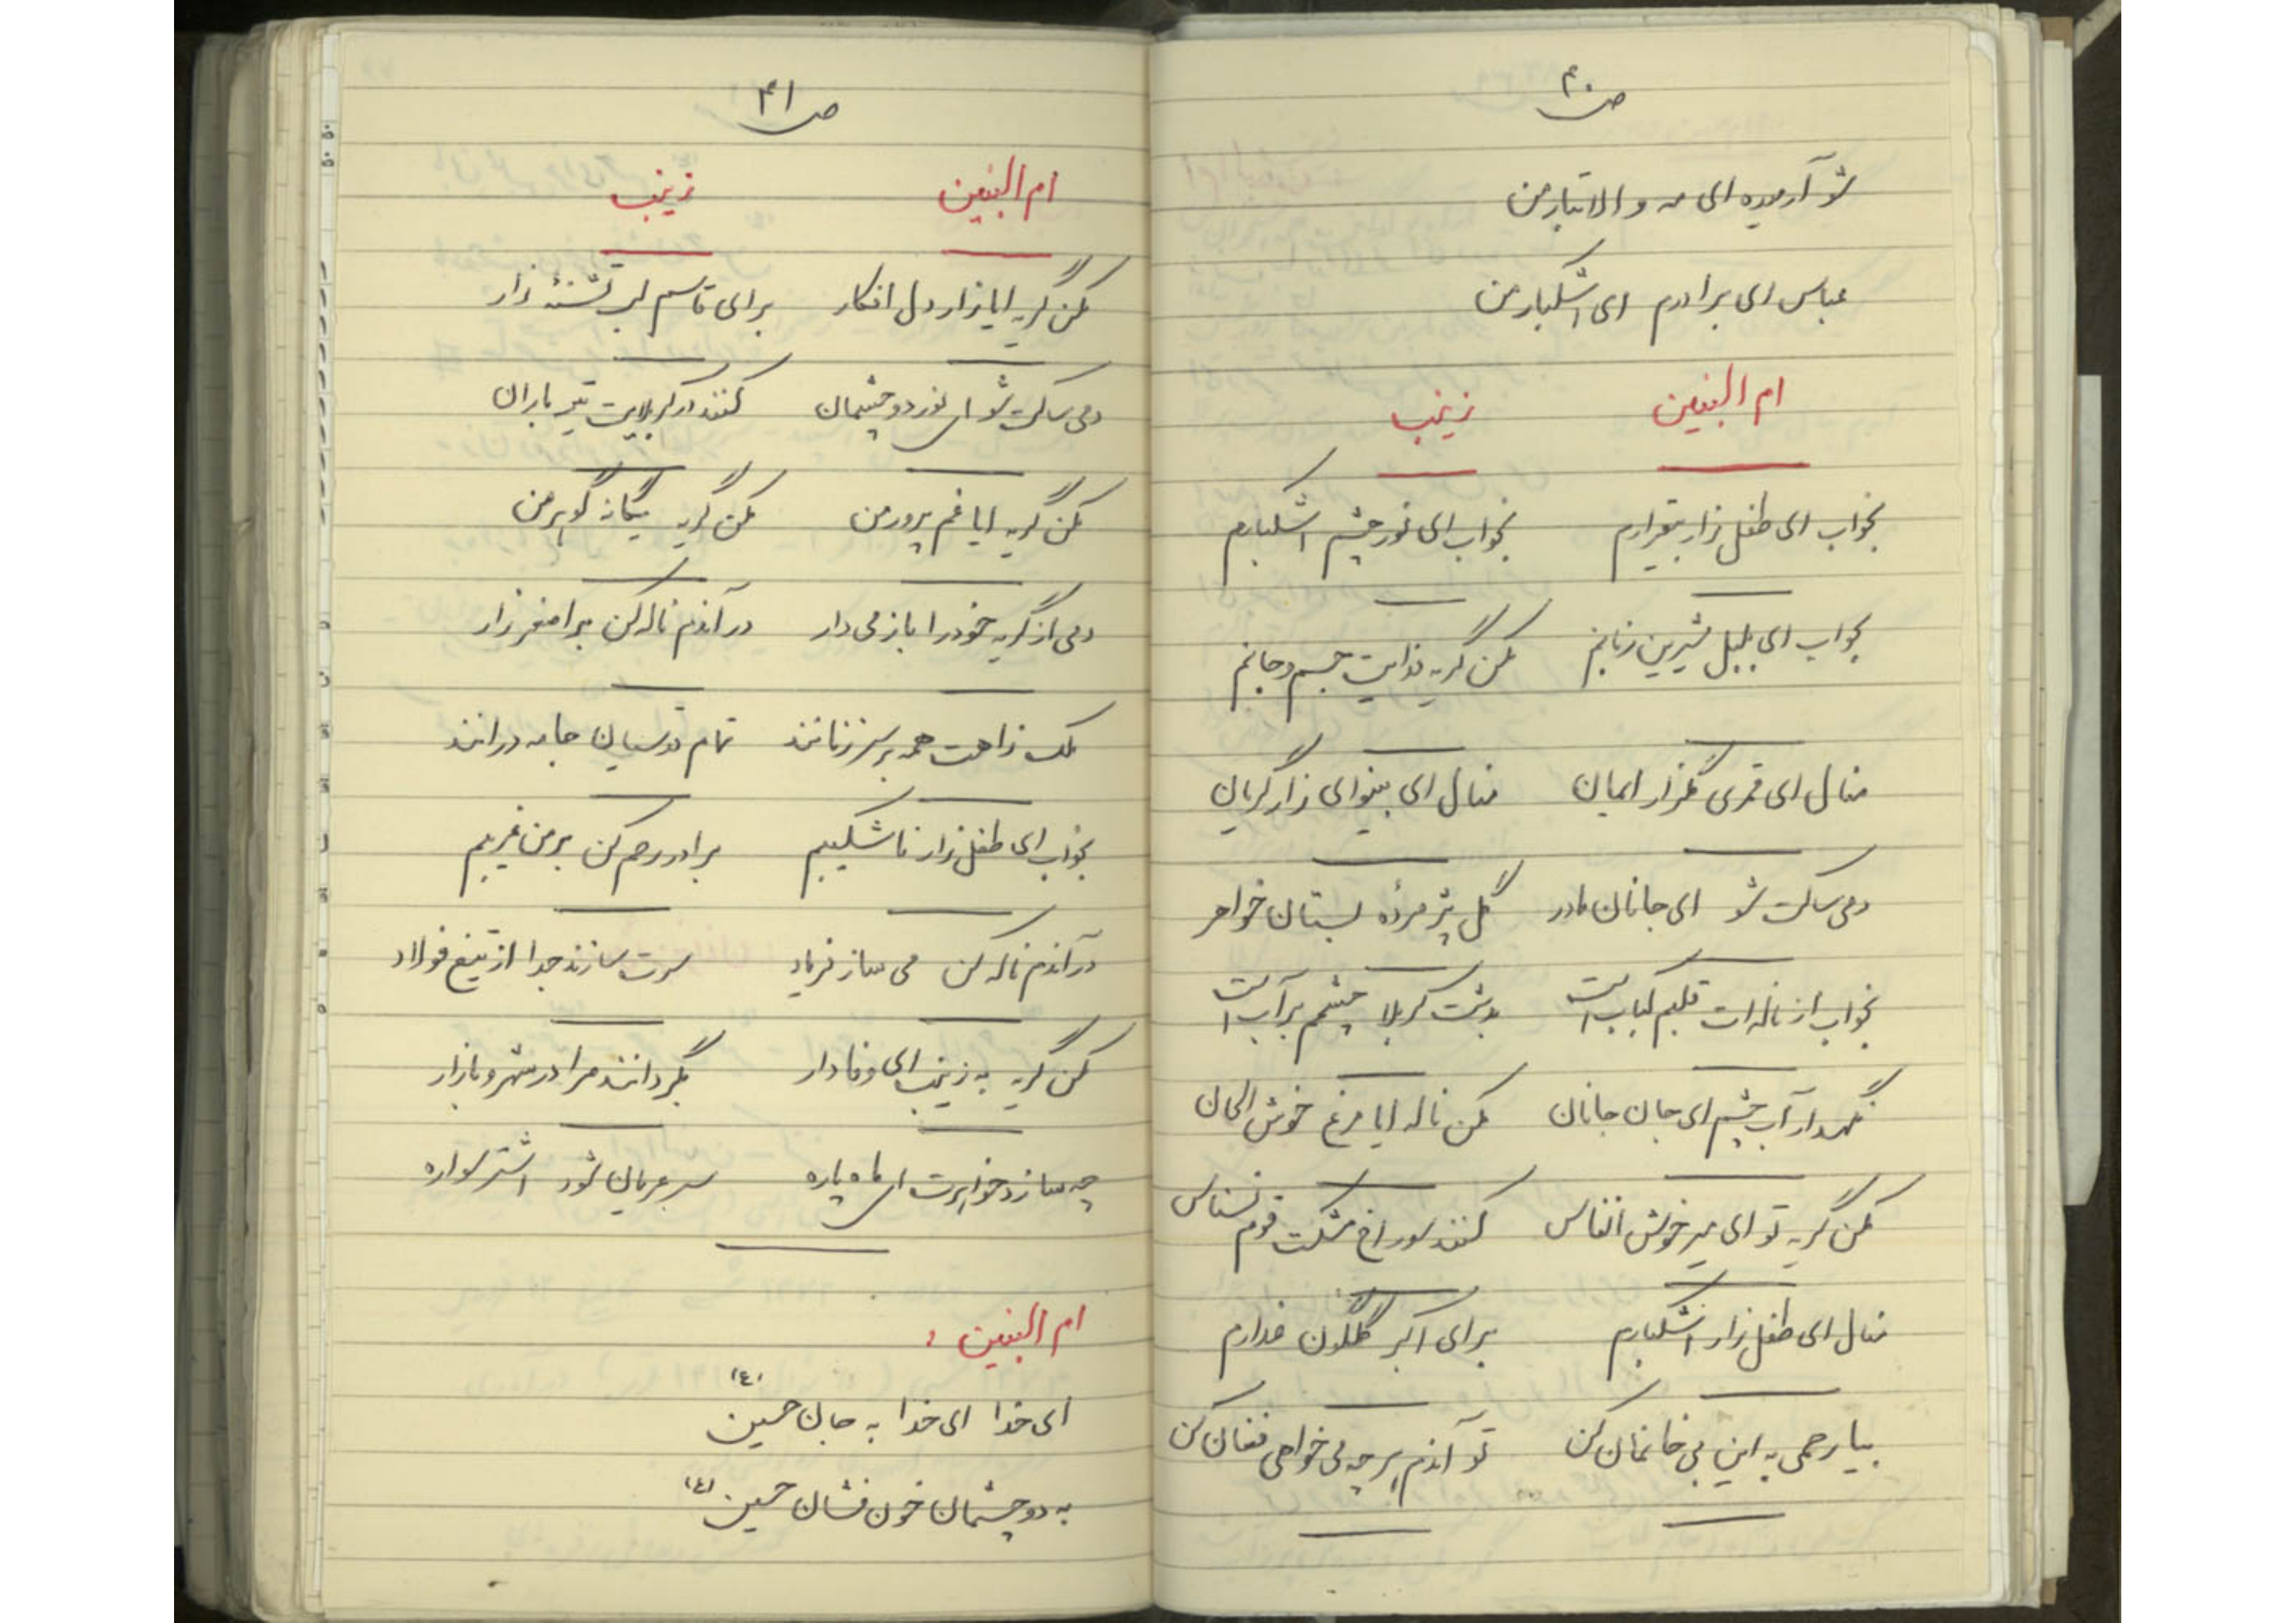 ص ۴۰
شو آرمیده ای مه والاتبار من
عباس ای برادرم ای اشکبار من
ام البنین زینب
بخواب ای طفل زار بیقرارم بخواب ای نور چشم اشکبارم
بخواب ای بلبل شیرین زبانم مکن گریه فدایت جسم و جانم
منال ای قمری گلزار ایمان منال ای بینوای زار گریان
دمی ساکت شو ای جانان مادر گل پژمرده بستان خواهر
بخواب از ناله ات قلبم کباب است بدشت کربلا چشمم پرآب است
نگهدار آب چشم ای جان جانان مکن ناله ایا مرغ خوش الحان
مکن گریه تو ای میر خوش انفاس کنند سوراخ مشکت قوم نسناس
منال ای طفل زار اشکبارم برای اکبر گلگون عذارم
بیا رحمی به این بی خانمان کن تو آندم هر چه می خواهی فغان کن
ص ۴۱
ام البنین زینب
مکن گریه ایا زار دل افکار برای قاسم لب تشنه زار
دمی ساکت شو ای نور دو چشمان کنند در کربلایت تیر باران
مکن گریه ایا غم پرور من مکن گریه یگانه گوهر من
دمی از گریه خود را باز می دار در آندم ناله کن بر اصغر زار
ملک ز آهت همه بر سر زنانند تمام قدسیان جامه درانند
بخواب ای طفل زار ناشکیبم برادر رحم کن بر من غریبم
در آندم ناله کن می ساز فریاد سرت سازند جدا از تیغ فولاد
مکن گریه به زینب ای وفادار بگردانند مرا در شهر و بازار
چه سازد خواهرت ای ماه پاره سر عریان شود اشتر سواره
ام البنین :
ای خدا ای خدا به جان حسین (ع)
به دو چشمان خون فشان حسین (ع)